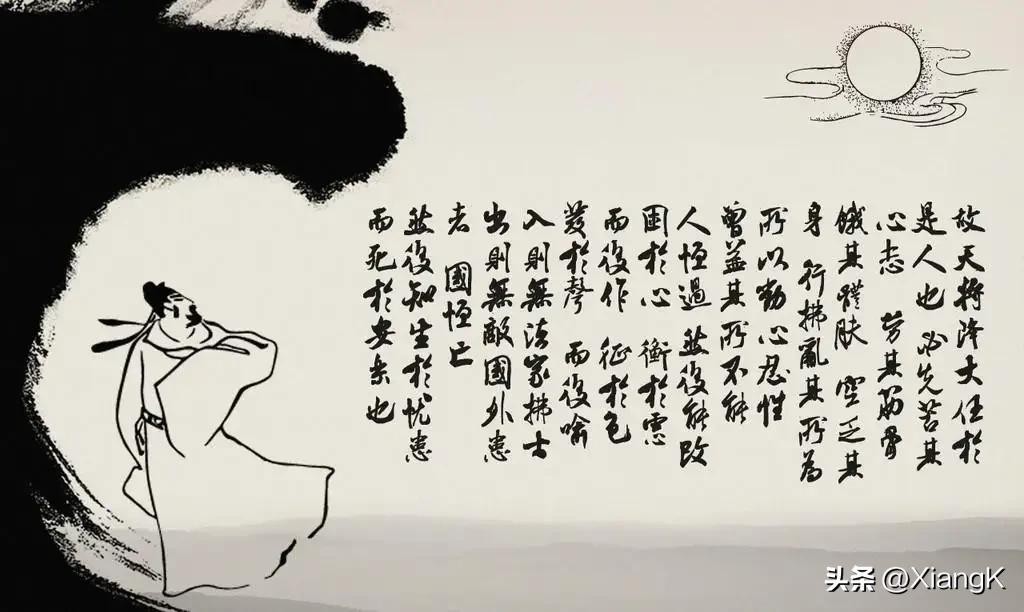 故天將降大任於
是人也 必先苦其
心志 勞其筋骨
餓其體膚 空乏其
身 行拂亂其所為
所以動心忍性
曾益其所不能
人恒過 然後能改
困於心 衡於慮
而後作 征於色
發於聲 而後喻
入則無法家拂士
出則無敵國外患
者 國恒亡
然後知生於憂患
而死於安樂也
头条 @XiangK